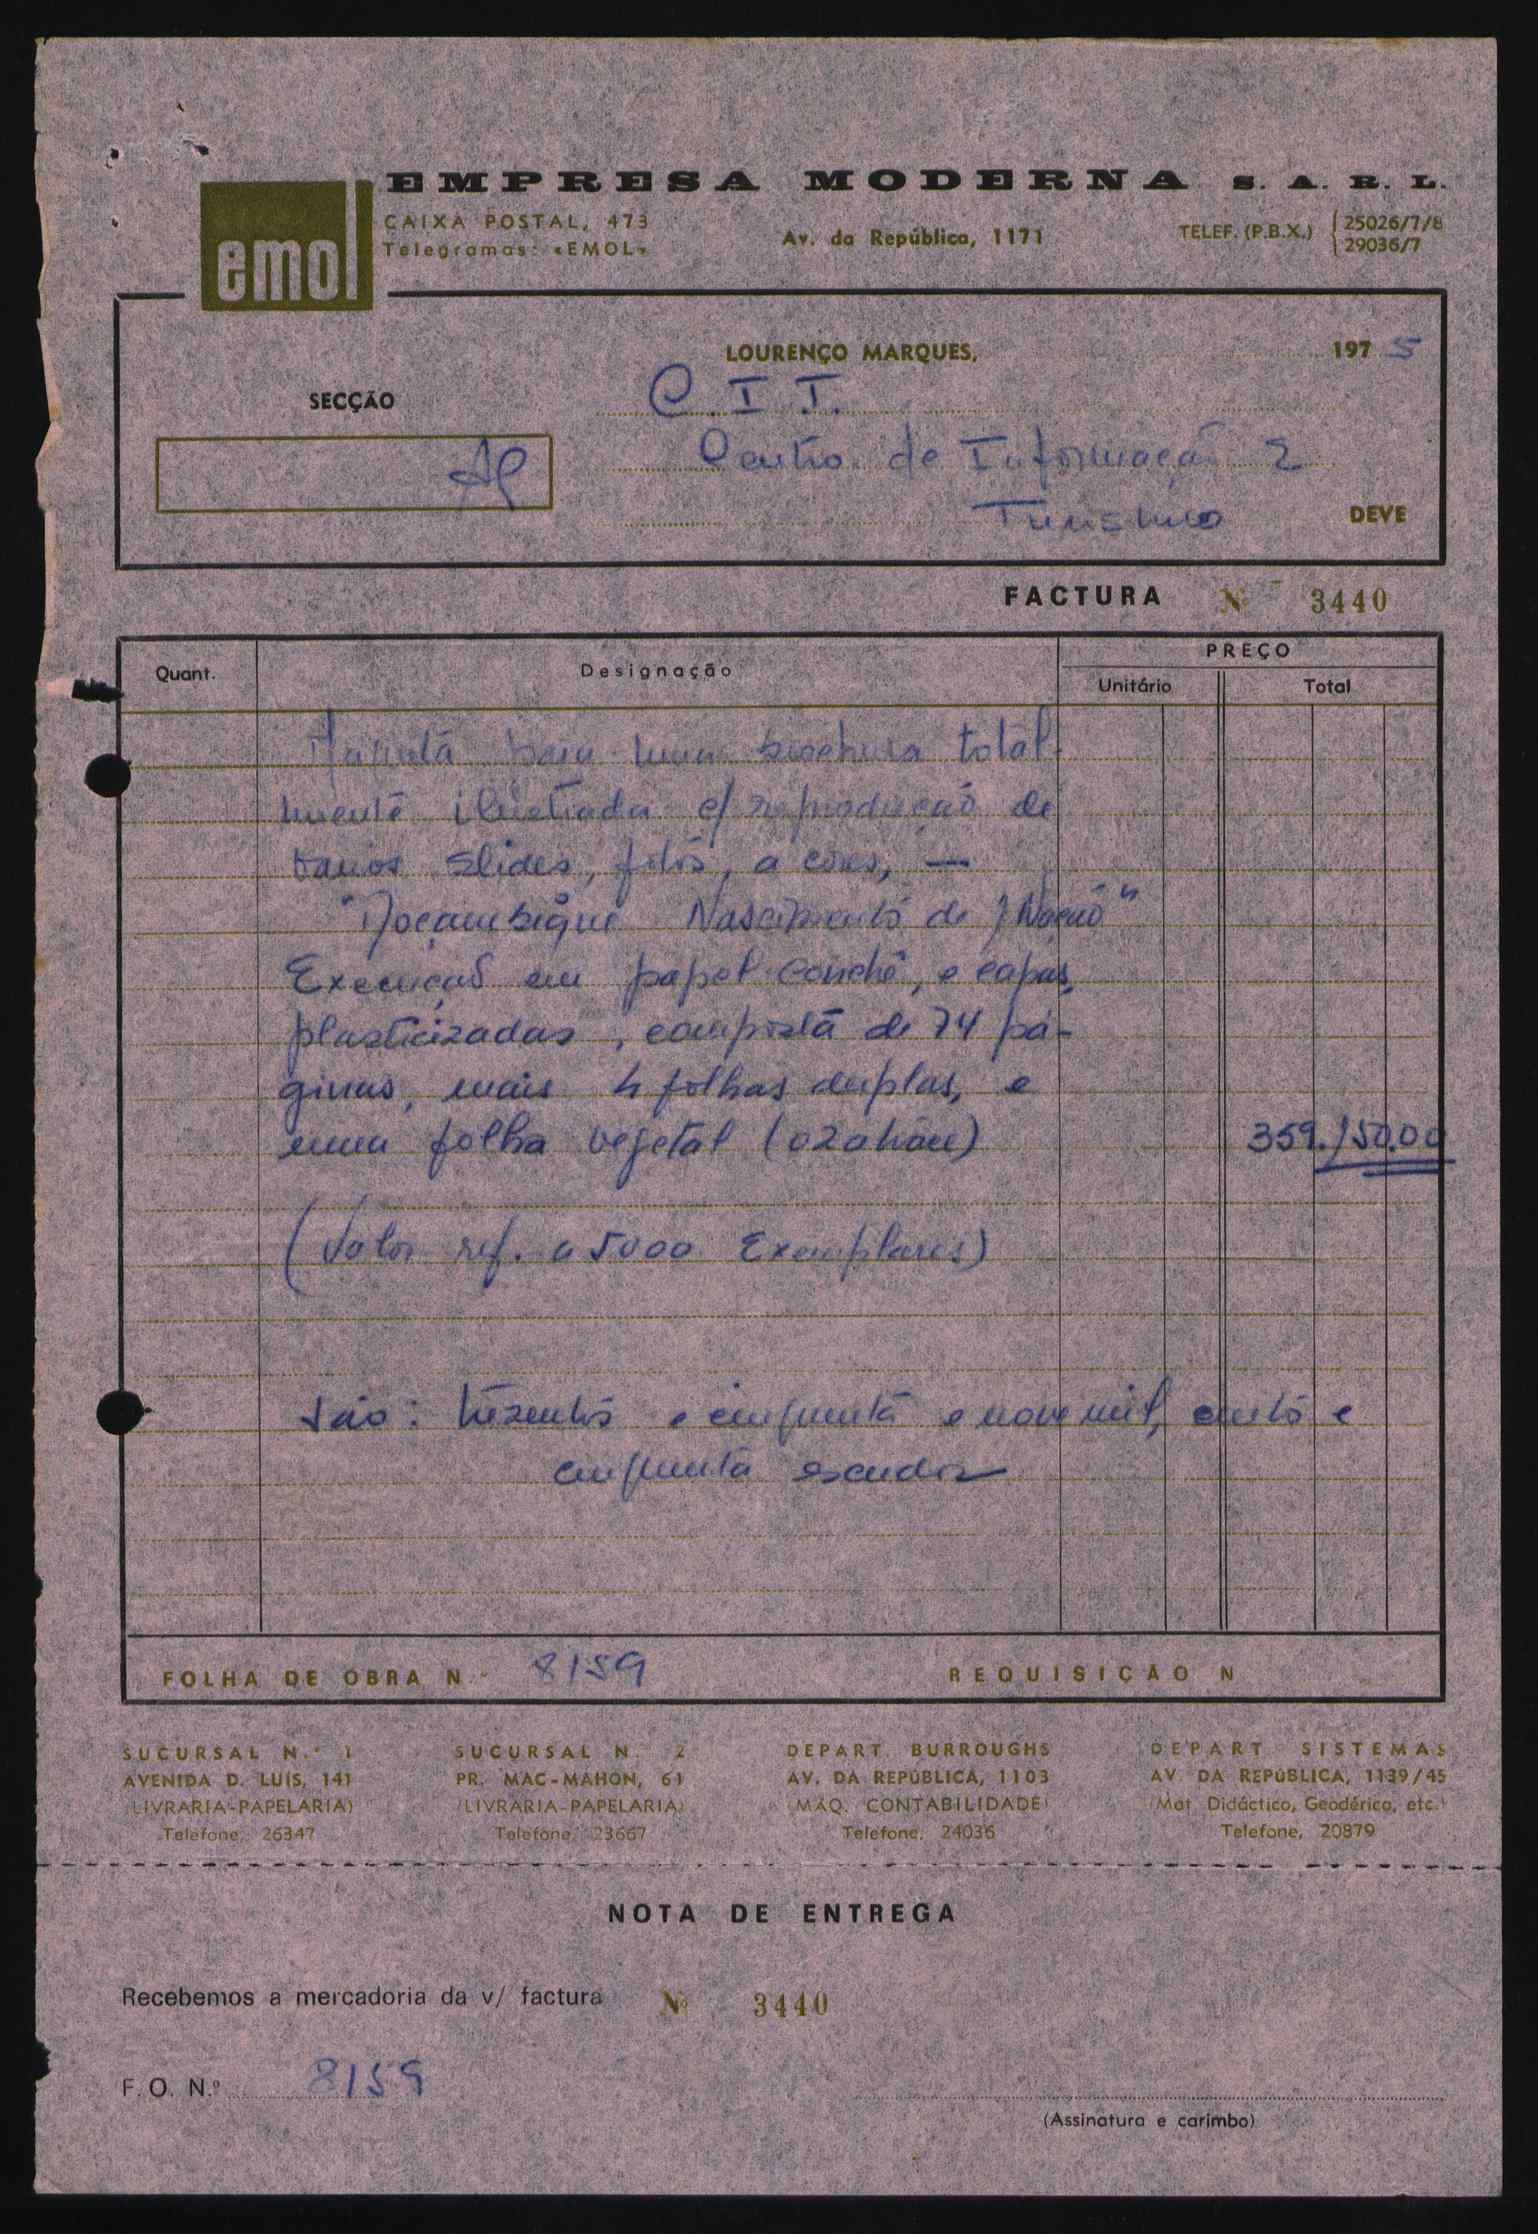 EMPRESA MODERNA S. A. R. L.
emol
CAIXA POSTAL, 473
Telegramas: «EMOL»
Av. da República, 1171
TELEF. (P.B.X.) 25026/7/8
29036/7
LOURENÇO MARQUES, 1975
SECÇÃO
C. I. T.
Centro de Informação e
Turismo
DEVE
FACTURA Nº 3440
Quant. Designação PREÇO
Unitário Total
Maqueta para uma brochura total-
mente ilustrada c/ reprodução de
varios slides, fotos, a cores, —
"Moçambique Nascimento de 1 Nação"
Execução em papel couché, e capas
plasticizadas, composta de 74 pá-
ginas, mais 4 folhas duplas, e
uma folha vegetal (ozahau) 359.150.00
(Valor ref. a 5000 Exemplares)
São: trezentos e cinquenta e nove mil, cento e
cinquenta escudos
FOLHA DE OBRA N.º 8159 REQUISIÇÃO N
SUCURSAL N.º 1
AVENIDA D. LUÍS, 141
(LIVRARIA-PAPELARIA)
Telefone, 26347
SUCURSAL N. 2
PR. MAC-MAHON, 61
(LIVRARIA-PAPELARIA)
Telefone, 23667
DEPART. BURROUGHS
AV. DA REPÚBLICA, 1103
(MÁQ. CONTABILIDADE)
Telefone, 24036
DEPART. SISTEMAS
AV. DA REPÚBLICA, 1139/45
(Mat. Didáctico, Geodérico, etc.)
Telefone, 20879
NOTA DE ENTREGA
Recebemos a mercadoria da v/ factura Nº 3440
F. O. N.º 8159
(Assinatura e carimbo)